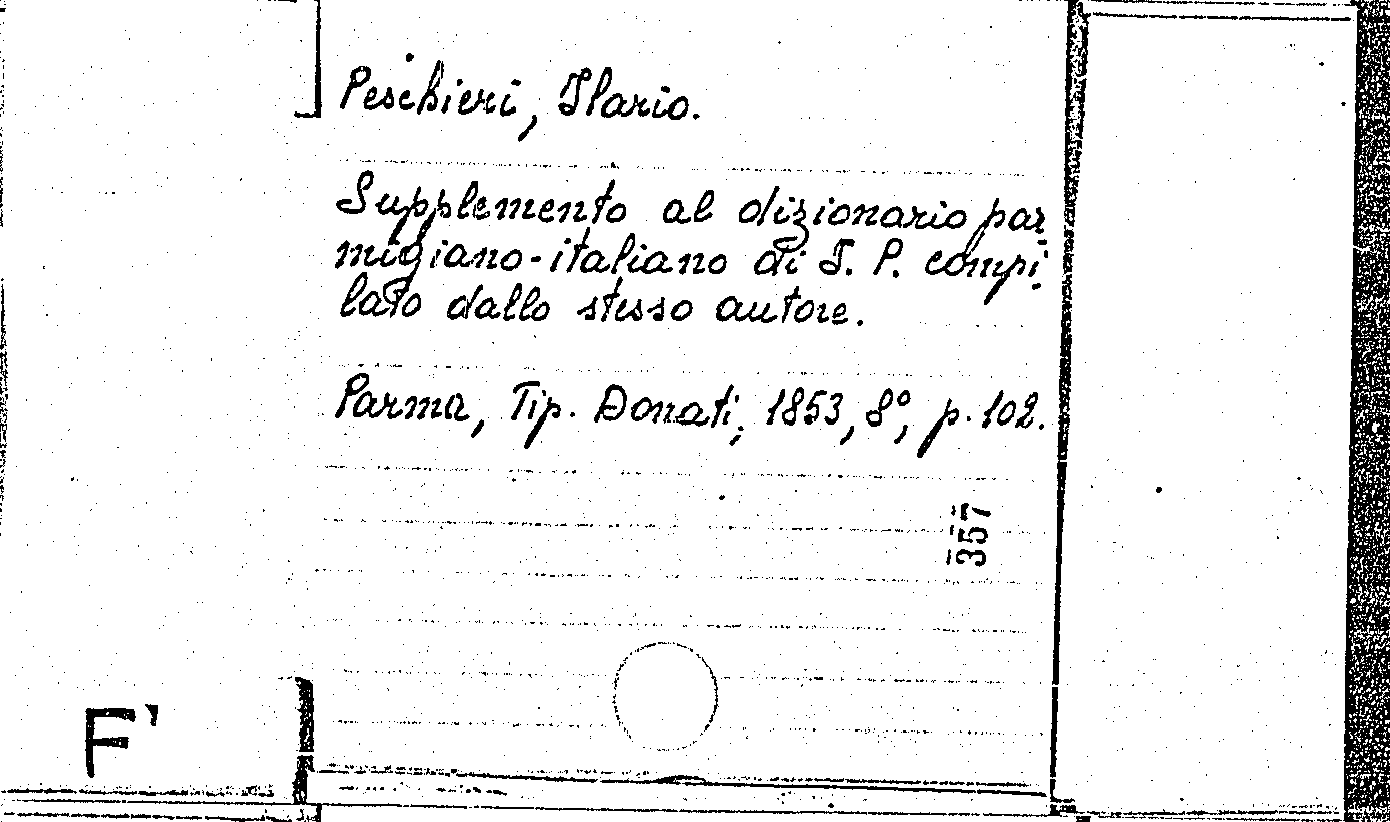 Peschieri, Ilario.
Supplemento al dizionario par
migiano-italiano di I. P. compi
lato dallo stesso autore.
Parma, Tip. Donati, 1853, 8°, p. 102.
357
F'